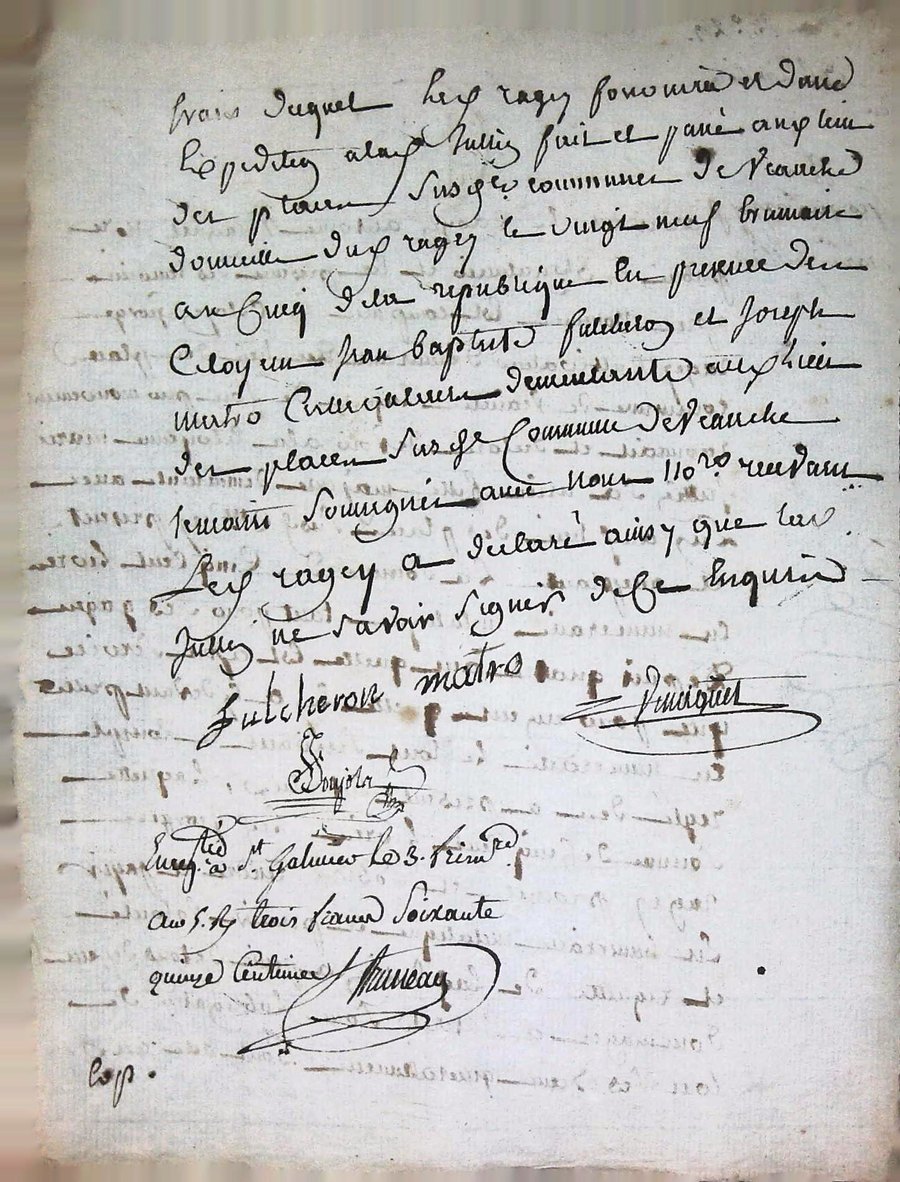 frais duquel led. ragey fournira et dura
Expedition a lad. Jullien fait et passé aux lieu
des places susd. commune de Veauche
domicile dud. ragey le vingt neuf brumaire
an Cinq de la république En presence des
Citoyens Jean baptiste fulcheron et Joseph
matro Cultivateurs demeurants auxd. lieu
des places susd. Commune de Veauche
temoins soussignés avec nous no.re recevant
Led. ragey a déclaré ainsy que lad.
Jullien ne savoir signer de Ce Enquis
fulcheron matro
Donjola
Enreg.tré à S.t Galmier le 3. frim.re
an 5. R. trois francs soixante
quinze Centimes
Exp.